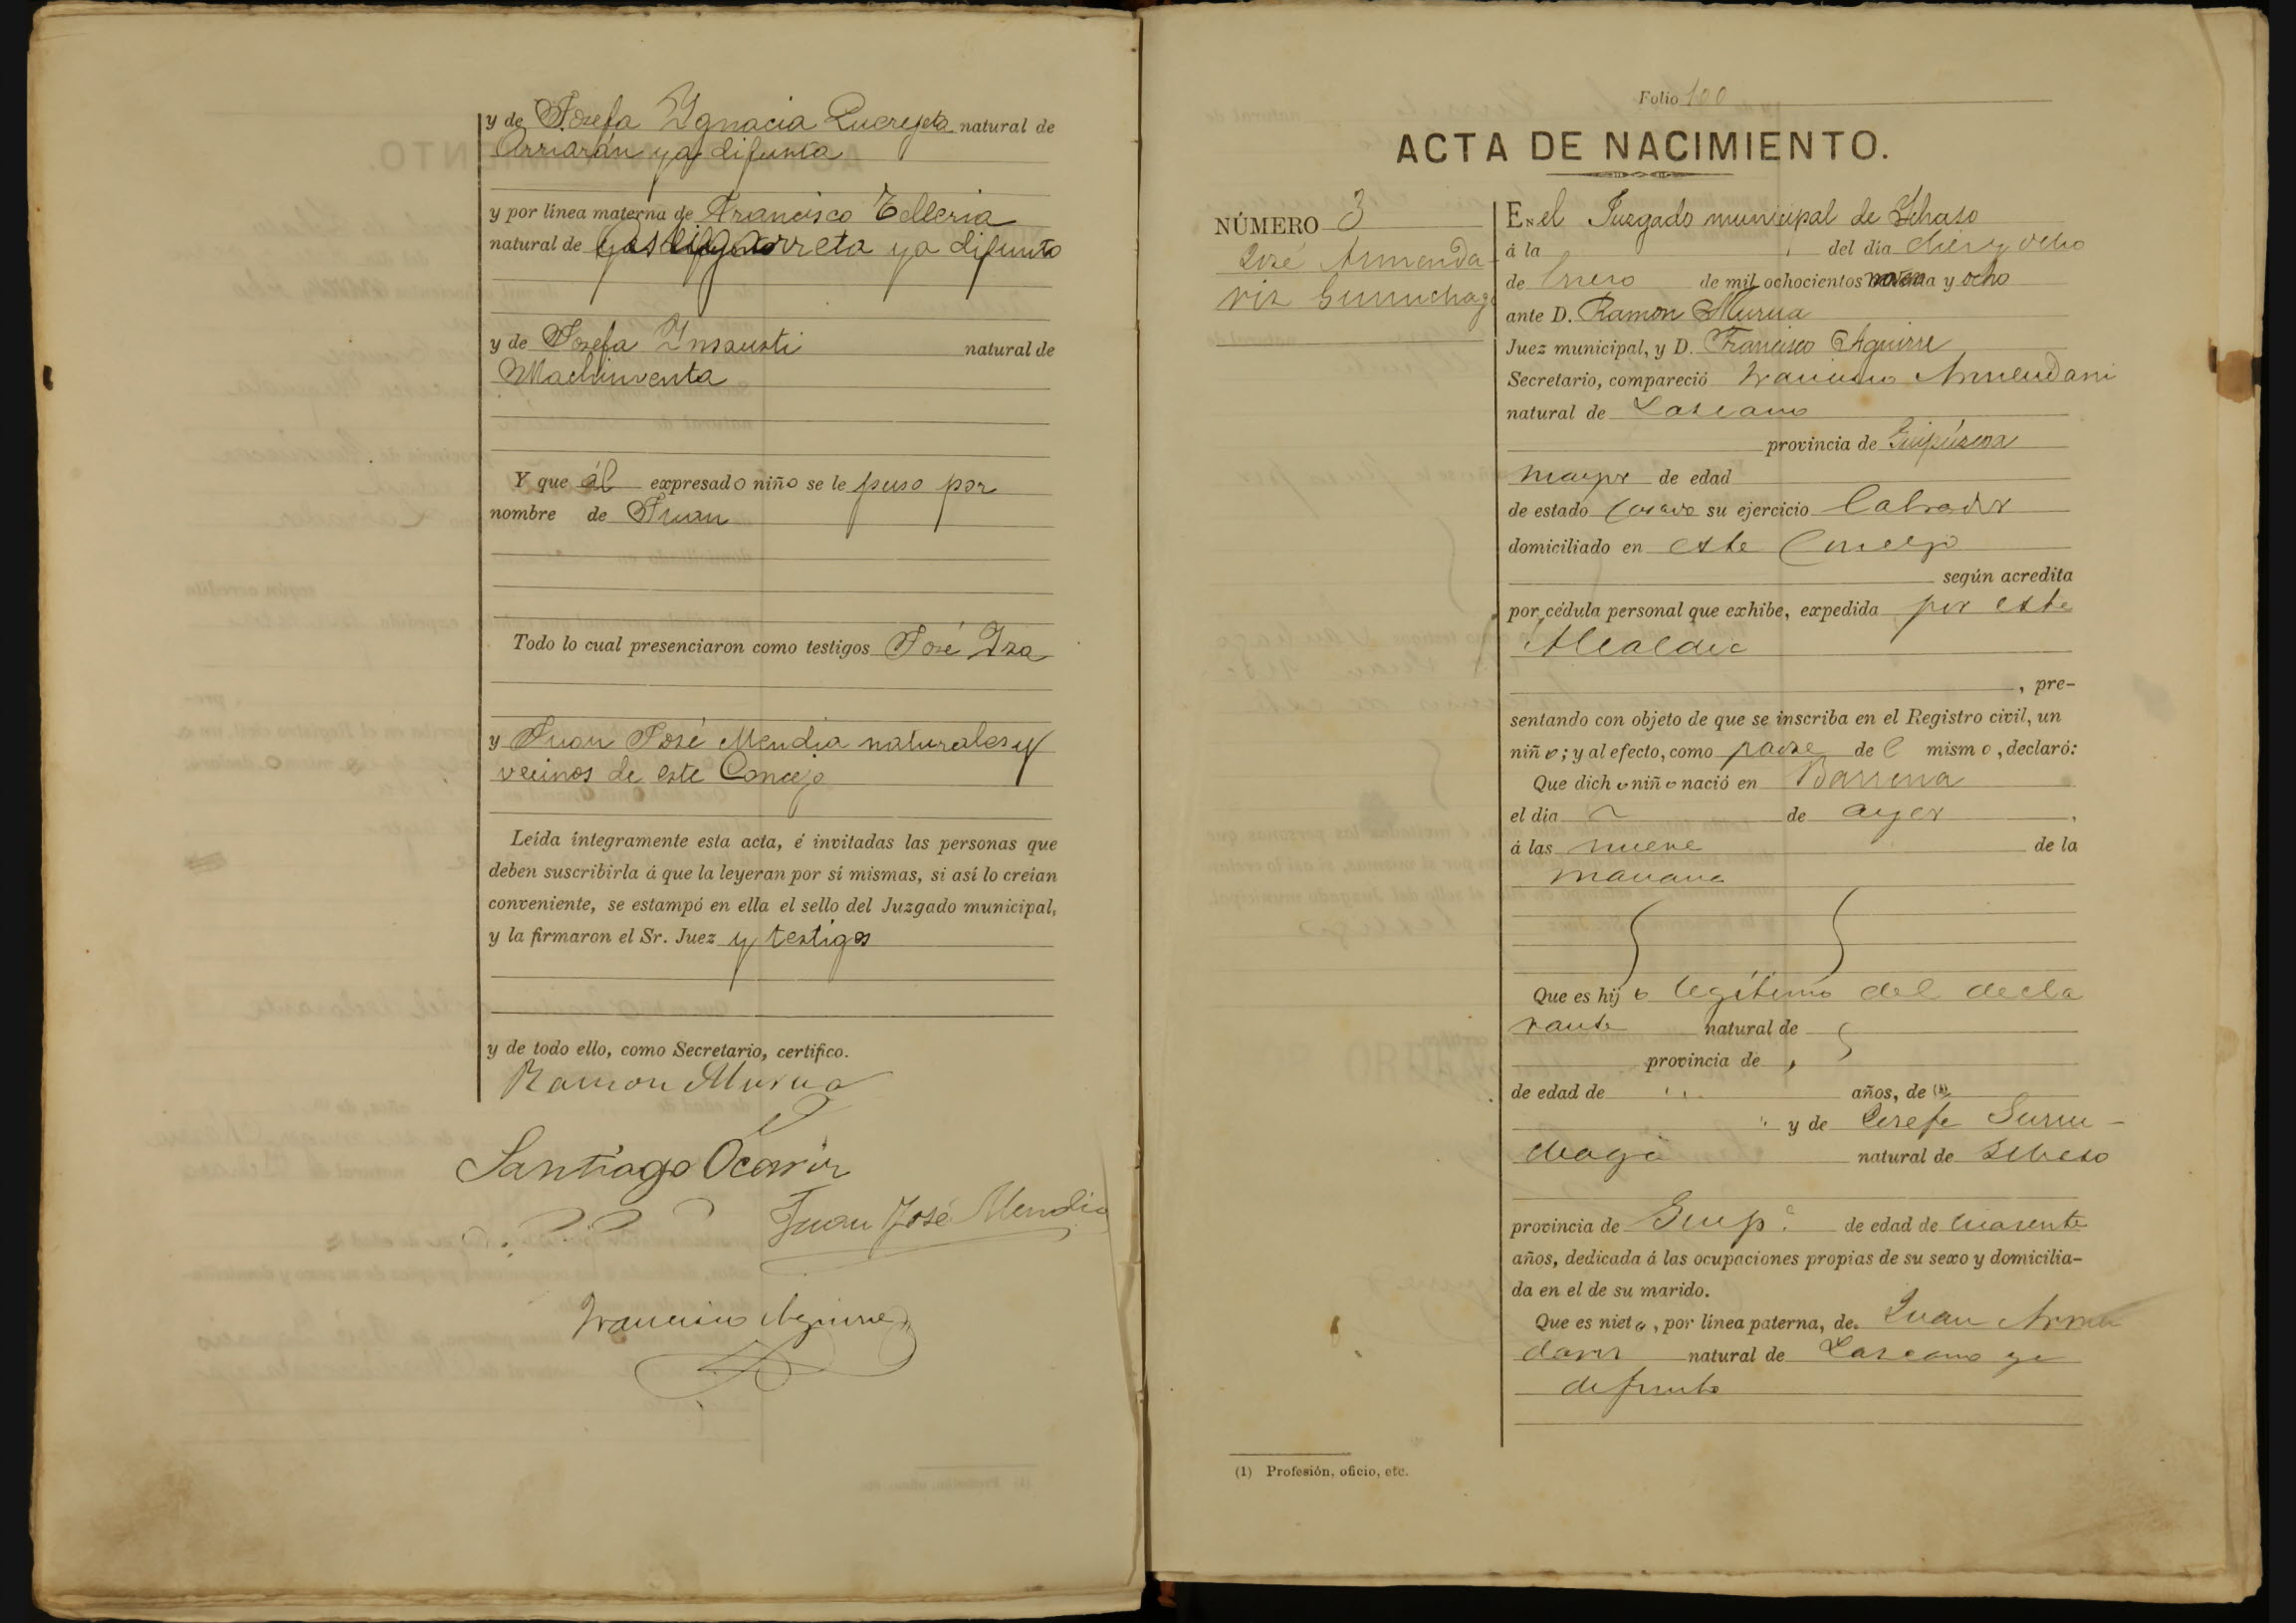 y de Josefa Ygnacia Lucreyeta natural de
Arriarán ya difunta
y por línea materna de Francisco Telleria
natural de Gastigarreta ya difunto
y de Josefa Insausti natural de
Machinventa
Y que ál expresado niño se le puso por
nombre de Juan
Todo lo cual presenciaron como testigos José Iza
y Juan José Mendia naturales y
vecinos de este Concejo
Leída íntegramente esta acta, é invitadas las personas que
deben suscribirla á que la leyeran por sí mismas, si así lo creían
conveniente, se estampó en ella el sello del Juzgado municipal,
y la firmaron el Sr. Juez y testigos
y de todo ello, como Secretario, certifico.
Ramon Murua
Santiago
Juan José Mendia
Francisco Aguirre
Folio 100
ACTA DE NACIMIENTO.
NÚMERO 3
José Armenda
riz Gurruchaga
En el Juzgado municipal de Ichaso
á la del día diez y ocho
de Enero de mil ochocientos noventa y ocho
ante D. Ramon Murua
Juez municipal, y D. Francisco Aguirre
Secretario, compareció Francisco Armendari
natural de Lazcano
provincia de Guipúzcoa
mayor de edad
de estado casado su ejercicio labrador
domiciliado en este Concejo
según acredita
por cédula personal que exhibe, expedida por esta
Alcaldia
, pre-
sentando con objeto de que se inscriba en el Registro civil, un
niño; y al efecto, como padre del mismo, declaró:
Que dicho niño nació en Barrena
el día de ayer
á las nueve de la
mañana
Que es hijo legítimo del decla
rante natural de
provincia de
de edad de años, de (1)
y de Josefa Gurru-
chaga natural de Ichaso
provincia de Guip.a de edad de cuarenta
años, dedicada á las ocupaciones propias de su sexo y domicilia-
da en el de su marido.
Que es nieto, por línea paterna, de Juan Armen
dariz natural de Lazcano ya
difunto
(1) Profesión, oficio, etc.